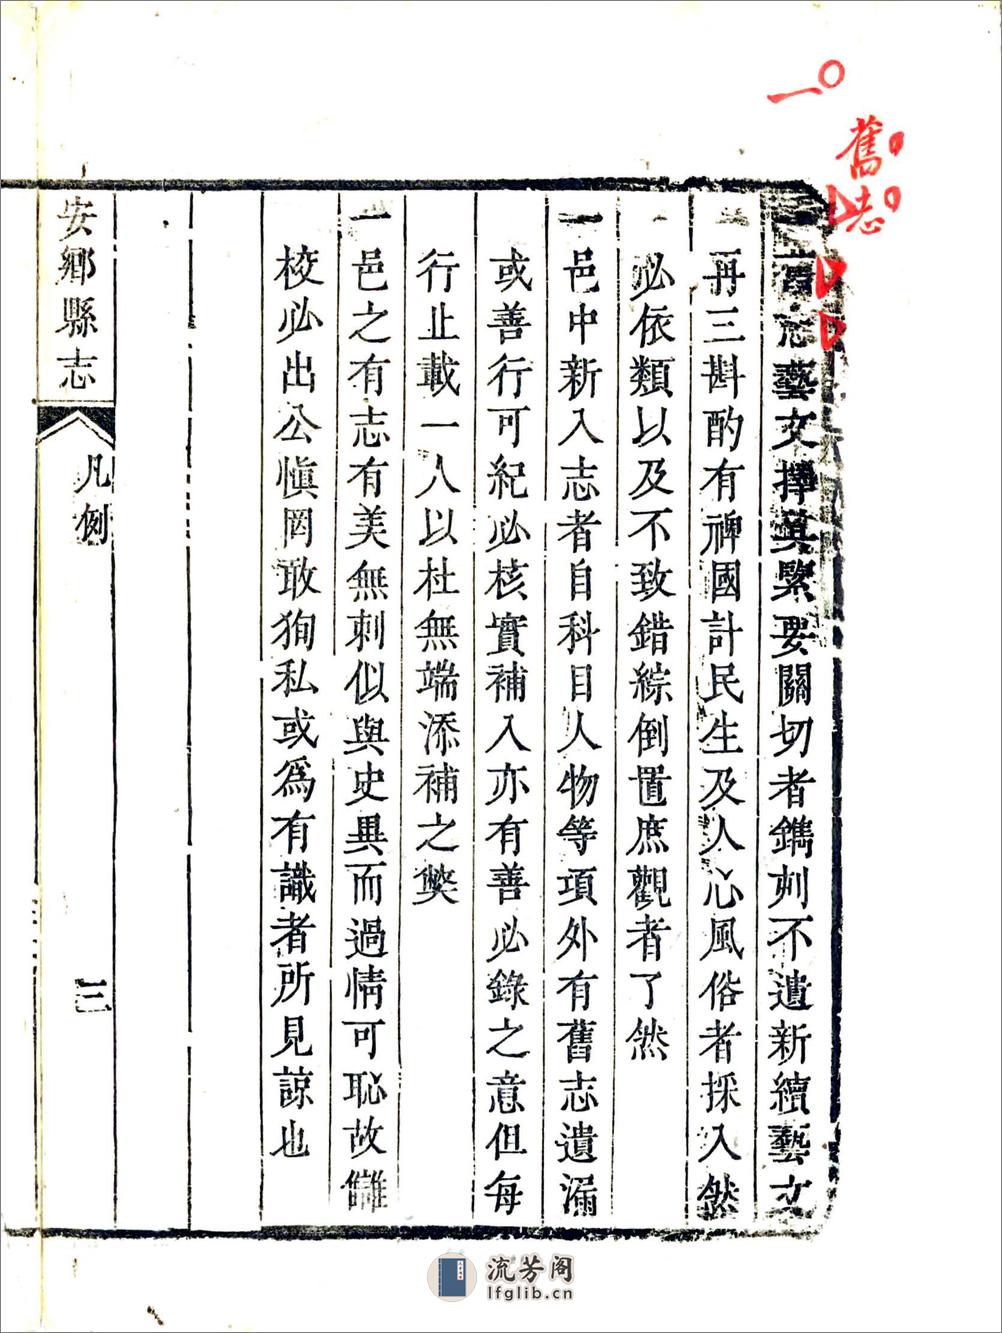 一
舊志
舊志藝文擇其緊要關切者鐫刻不遺新續藝文
再三斟酌有裨國計民生及人心風俗者採入然
必依類以及不致錯綜倒置庶觀者了然
一邑中新入志者自科目人物等項外有舊志遺漏
或善行可紀必核實補入亦有善必錄之意但每
行止載一人以杜無端添補之獘
一邑之有志有美無刺似與史異而過情可恥故讎
校必出公愼罔敢狥私或爲有識者所見諒也
安鄉縣志
凡例
三
流芳阁
lfglib.cn